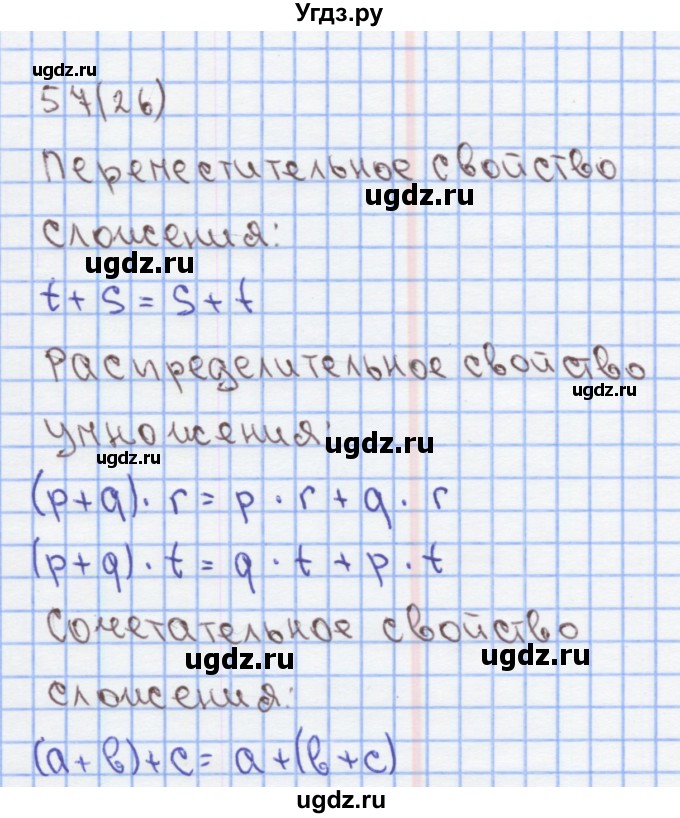 Угдз.ру
ugdz.ru
57(26)
Переместительное свойство
ugdz.ru
сложения:
ugdz.ru
t + s = s + t
Распределительное свойство
ugdz.ru
умножения:
ugdz.ru
ugdz.ru
(p+q) · r = p · r + q · r
(p+q) · t = q · t + p · t
Сочетательное свойство
ugdz.ru
ugdz.ru
сложения:
(a + b) + c = a + (b + c)
ugdz.ru